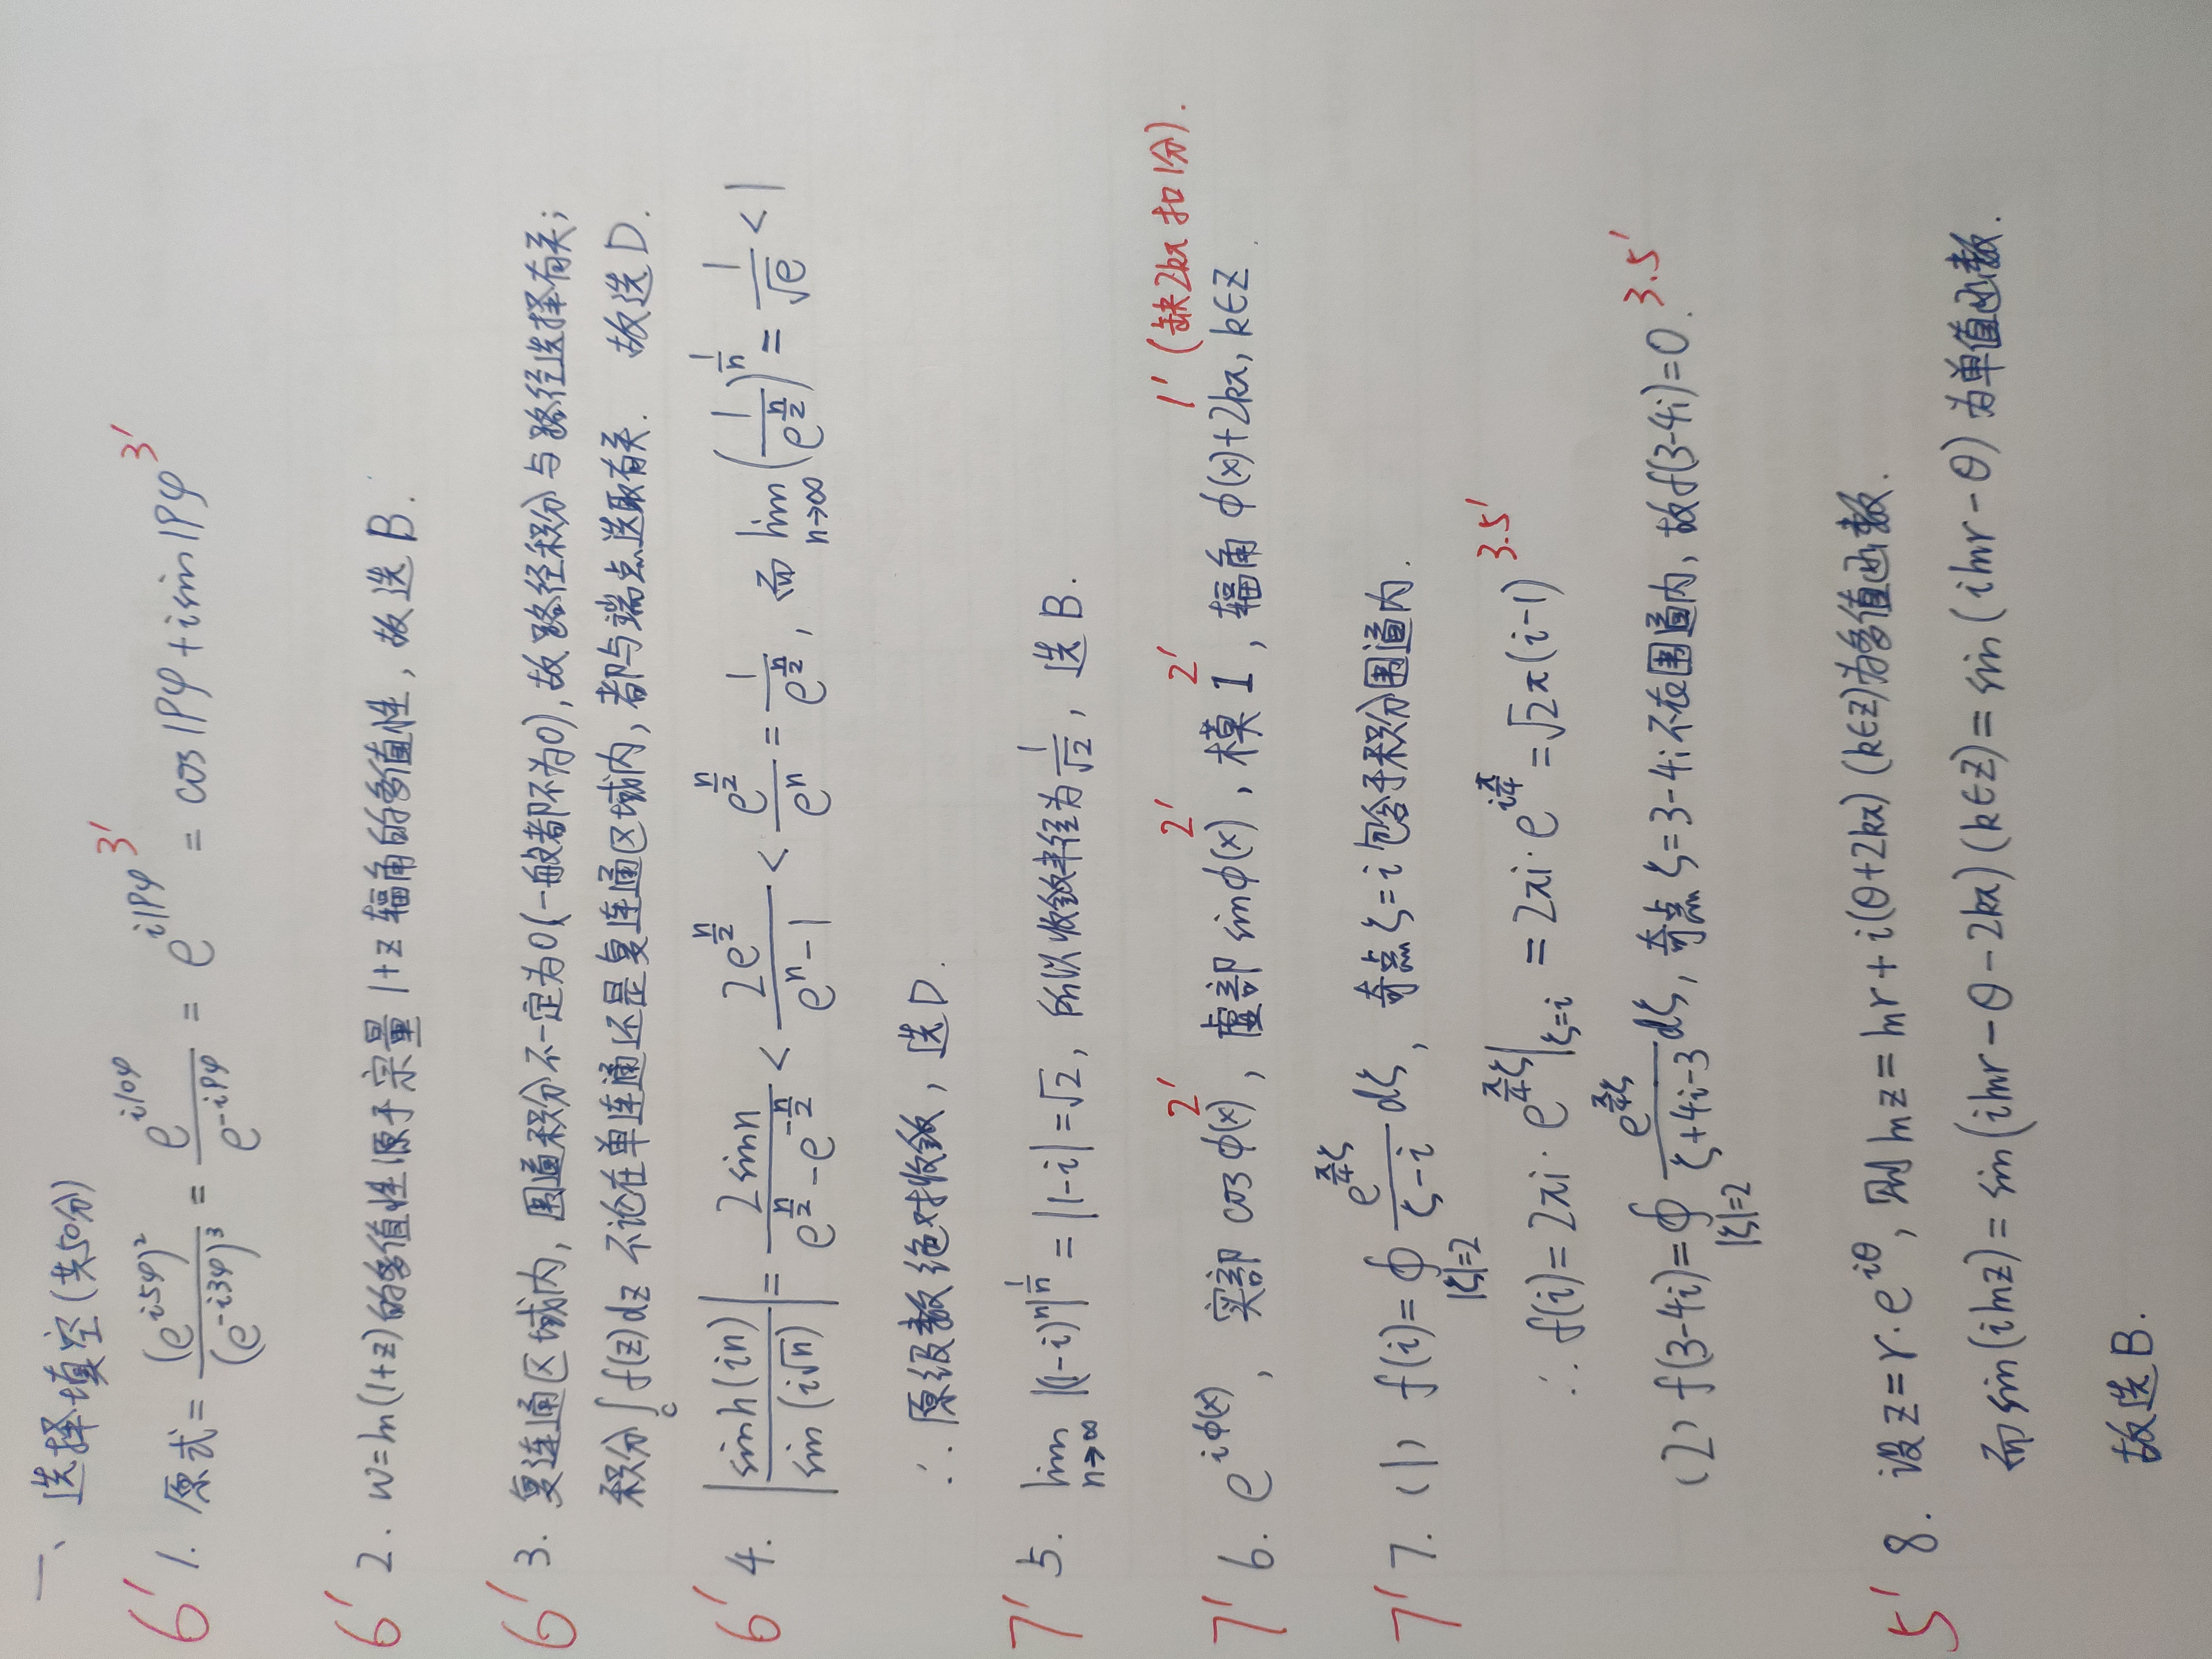 一、选择填空(共50分)
6' 1. 原式 = (e^{i5φ})² / (e^{-i3φ})³ = e^{i10φ} / e^{-i9φ} = e^{i19φ} 3' = cos19φ + isin19φ 3'
6' 2. w=ln(1+z)的多值性源于宗量1+z辐角的多值性, 故选B.
6' 3. 复连通区域内, 围道积分不一定为0(一般都不为0), 故路径积分与路径选择有关;
积分∫_c f(z)dz 不论在单连通还是复连通区域内, 都与端点选取有关. 故选D.
6' 4. |sinh(in) / sin(i√n)| = 2sinn / (e^{n/2} - e^{-n/2}) < 2e^{n/2} / (e^n - 1) < e^{n/2} / e^n = 1 / e^{n/2}, 而 lim_{n→∞} (1 / e^{n/2})^{1/n} = 1/√e < 1
∴原级数绝对收敛, 选D.
7' 5. lim_{n→∞} |(1-i)^n|^{1/n} = |1-i| = √2, 所以收敛半径为 1/√2, 选B.
2' 2' 2' 1' (缺2kπ扣1分).
7' 6. e^{iϕ(x)}, 实部 cosϕ(x), 虚部 sinϕ(x), 模1, 辐角 ϕ(x)+2kπ, k∈Z.
7' 7. (1) f(i) = ∮_{|ζ|=2} e^{π/4 ζ} / (ζ-i) dζ, 奇点ζ=i包含于积分围道内.
∴ f(i) = 2πi · e^{π/4 ζ}|_{ζ=i} = 2πi · e^{iπ/4} = √2π(i-1) 3.5'
(2) f(3-4i) = ∮_{|ζ|=2} e^{π/4 ζ} / (ζ+4i-3) dζ, 奇点ζ=3-4i不在围道内, 故f(3-4i)=0. 3.5'
5' 8. 设z=r·e^{iθ}, 则lnz=lnr+i(θ+2kπ)(k∈Z)为多值函数.
而sin(ilnz)=sin(ilnr-θ-2kπ)(k∈Z)=sin(ilnr-θ)为单值函数
故选B.